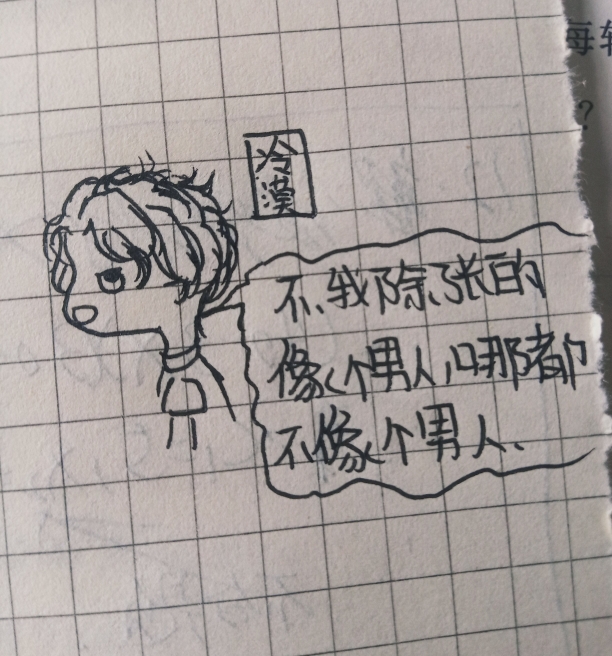 冷漠
不、我除、张的
像个男人，哪都
不像个男人、
每转
？